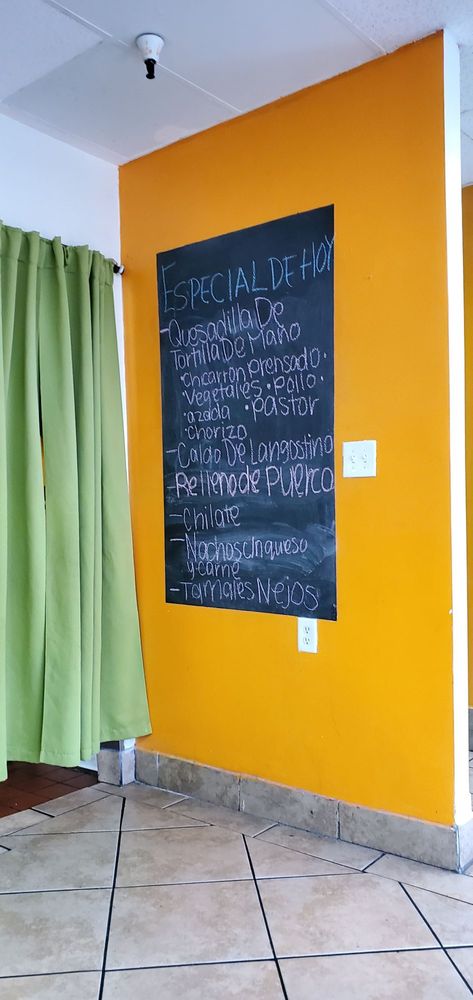 ESPECIAL DE HOY
- Quesadilla De
Tortilla De Mano
• chicarron Prensado •
Vegetales • Pollo •
• azada • Pastor
• chorizo
- Caldo De Langostino
- Relleno de Puerco
- Chilate
- Nachos cnqueso
y carne
- Tamales Nejos